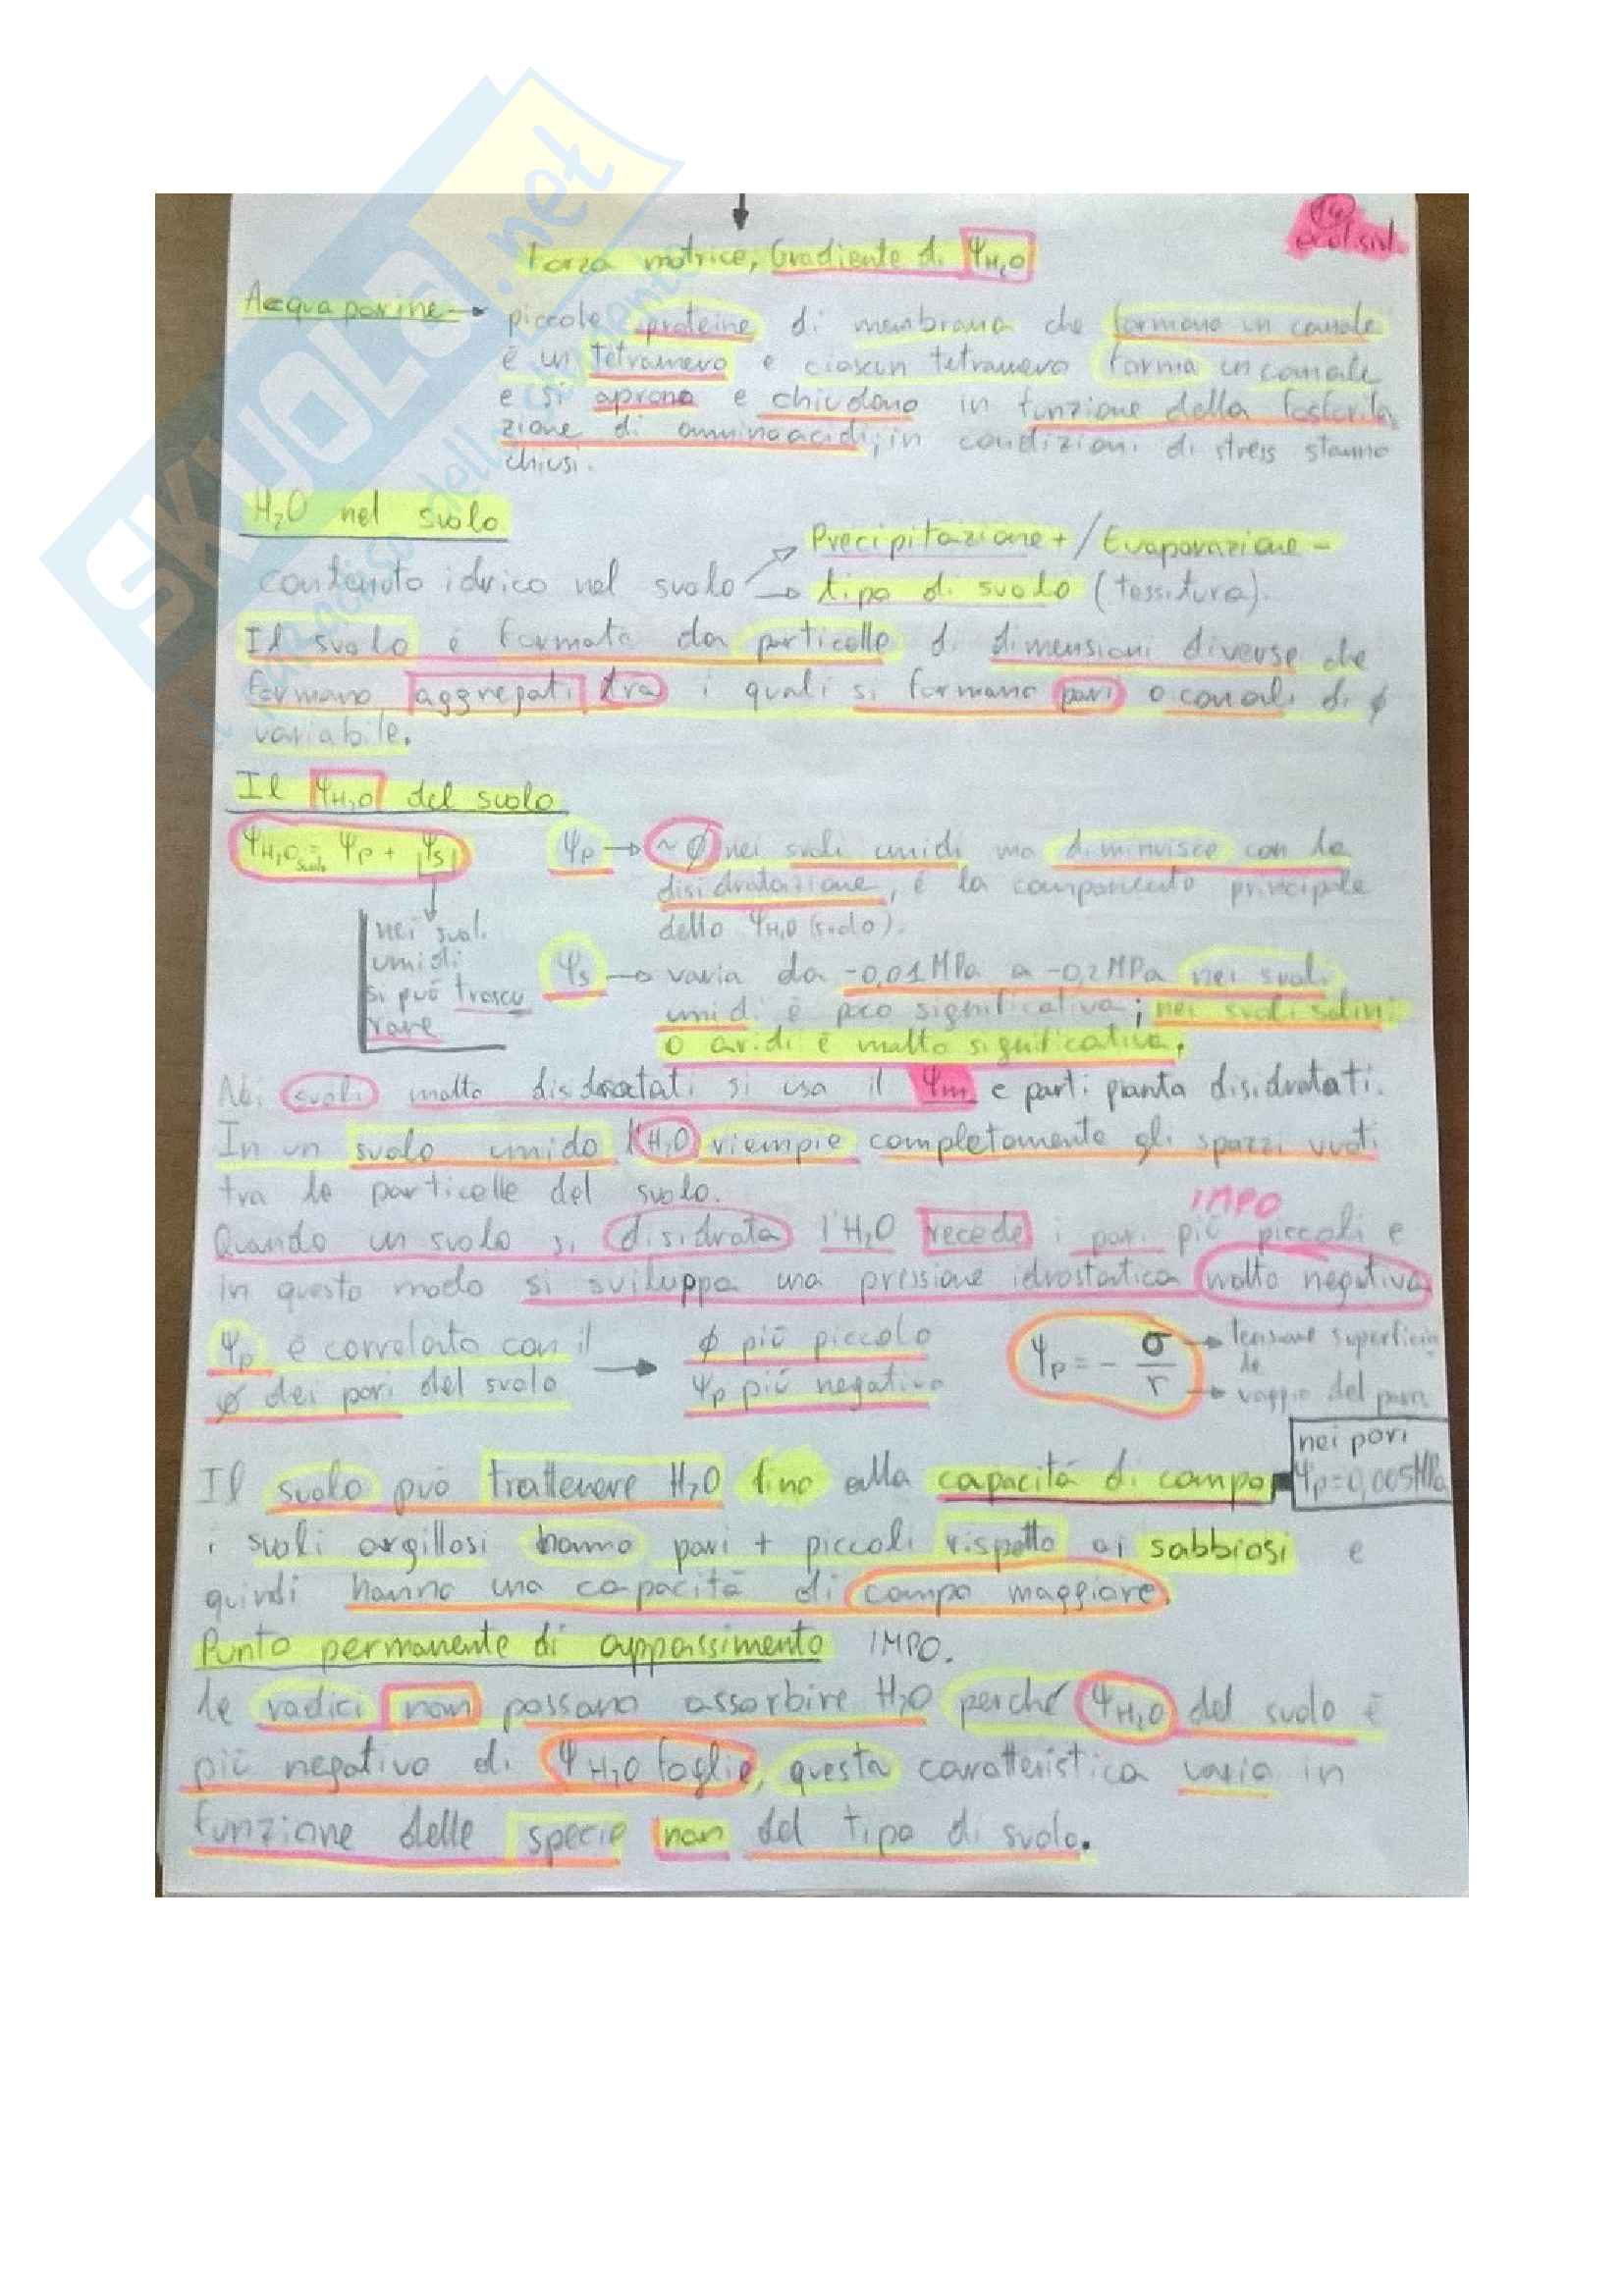 SKUOLA.net
Forza motrice, Gradiente di ΨH₂O
Acquaporine → piccole proteine di membrana che formano un canale
è un tetramero e ciascun tetramero forma un canale
e si aprono e chiudono in funzione della fosforila
zione di amminoacidi; in condizioni di stress stanno
chiusi.
H₂O nel suolo
Precipitazione + / Evaporazione -
contenuto idrico nel suolo → tipo di suolo (tessitura).
Il suolo è formato da particelle di dimensioni diverse che
formano aggregati tra i quali si formano pori o canali di ϕ
variabile.
Il ΨH₂O del suolo
ΨH₂O suolo = Ψp + Ψs
Ψp → ~ ϕ nei suoli umidi ma diminuisce con la
disidratazione, è la componente principale
dello ΨH₂O (suolo).
nei suoli
umidi
si può trascu
rare
Ψs → varia da -0,01 MPa a -0,2 MPa nei suoli
umidi è poco significativa; nei suoli salini
o aridi è molto significativa.
Nei suoli molto disidratati si usa il Ψm e parti pianta disidratati.
In un suolo umido l'H₂O riempie completamente gli spazi vuoti
tra le particelle del suolo.
IMPO
Quando un suolo si disidrata l'H₂O recede i pori più piccoli e
in questo modo si sviluppa una pressione idrostatica molto negativa
Ψp è correlato con il
ϕ dei pori del suolo
→
ϕ più piccolo
Ψp più negativo
Ψp = - σ/r
→ tensione superficia
le
→ raggio del pori
nei pori
Ψp = 0,005 MPa
Il suolo può trattenere H₂O fino alla capacità di campo
i suoli argillosi hanno pori + piccoli rispetto ai sabbiosi e
quindi hanno una capacità di campo maggiore.
Punto permanente di appassimento IMPO.
le radici non possono assorbire H₂O perché ΨH₂O del suolo è
più negativo di ΨH₂O foglie, questa caratteristica varia in
funzione delle specie non del tipo di suolo.